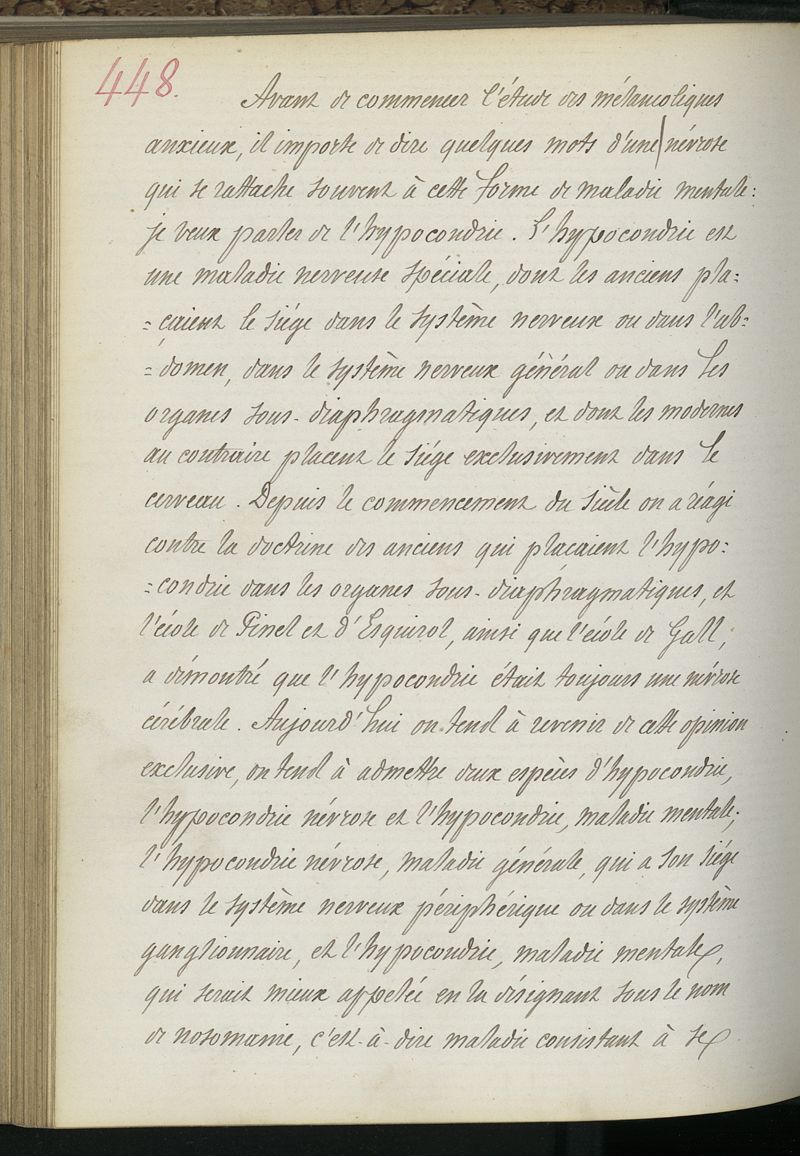 448.
Avant de commencer l'étude des mélancoliques
anxieux, il importe de dire quelques mots d'une névrose
qui se rattache souvent à cette forme de maladie mentale :
je veux parler de l'hypocondrie. L'hypocondrie est
une maladie nerveuse spéciale, dont les anciens pla=
=çaient le siége dans le système nerveux ou dans l'ab=
=domen, dans le système nerveux général ou dans les
organes sous-diaphragmatiques, et dont les modernes
au contraire placent le siége exclusivement dans le
cerveau. Depuis le commencement du siècle on a réagi
contre la doctrine des anciens qui placaient l'hypo=
=condrie dans les organes sous-diaphragmatiques, et
l'école de Pinel et d'Esquirol, ainsi que l'école de Gall,
a démontré que l'hypocondrie était toujours une névrose
cérébrale. Aujourd'hui on tend à revenir de cette opinion
exclusive, on tend à admettre deux espèces d'hypocondrie,
l'hypocondrie névrose et l'hypocondrie, maladie mentale;
l'hypocondrie névrose, maladie générale, qui a son siége
dans le système nerveux périphérique ou dans le système
ganglionnaire, et l'hypocondrie, maladie mentale,
qui serait mieux appelée en la désignant sous le nom
de nosomanie, c'est-à-dire maladie consistant à se